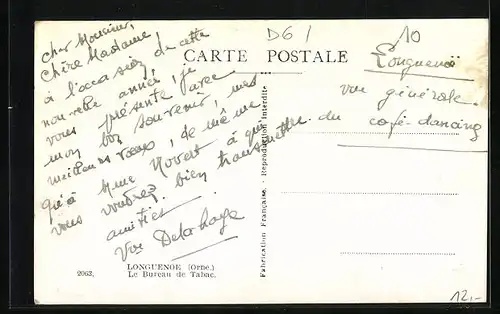 D61
10
CARTE POSTALE
cher Monsieur,
Chère Madame,
à l'occasion de cette
nouvelle année, je
vous présente avec
mon bon souvenir, mes
meilleurs vœux, de même
qu'à Mme Rovert à qui
vous voudrez bien transmettre
amitiés.
Delahaye
Longuenoë
vue générale.
du café-dancing
Fabrication Française. - Reproduction Interdite
2063. LONGUENOE (Orne.)
Le Bureau de Tabac.
12,-